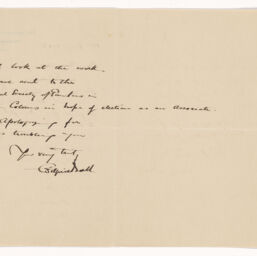 look at the work
sent to the
Society of Painters in
Colours in hope of election as an Associate.
Apologizing for
troubling you
Yrs very truly